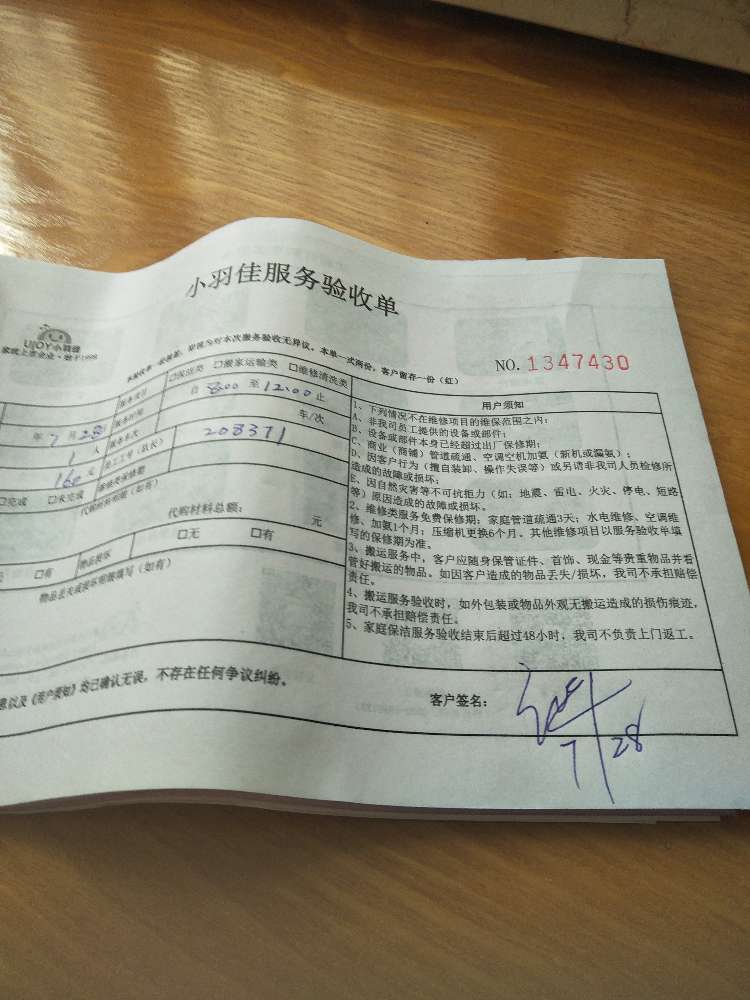 小羽佳服务验收单
UJOY小羽佳
NO. 1347430
本单一式两份，客户留存一份（红）
服务项目 □保洁类 □搬家运输类 □维修清洗类
年 7 月 28
服务时间 自 8:00 至 12:00 止
1 人 服务车次 车/次
160 元 员工工号（队长） 208371
□完成 □未完成 维修类保修期
代购材料明细（如有）
代购材料总额： 元
□有 物品损坏 □无 □有
物品丢失或损坏明细填写（如有）
用户须知
1、下列情况不在维修项目的维保范围之内：
A、非我司员工提供的设备或部件；
B、设备或部件本身已经超过出厂保修期；
C、商业（商铺）管道疏通、空调空机加氨（新机或漏氨）；
D、因客户行为（擅自装卸、操作失误等）或另请非我司人员检修所
造成的故障或损坏；
E、因自然灾害等不可抗拒力（如：地震、雷电、火灾、停电、短路
等）原因造成的故障或损坏。
2、维修类服务免费保修期：家庭管道疏通3天；水电维修、空调维
修、加氨1个月；压缩机更换6个月。其他维修项目以服务验收单填
写的保修期为准。
3、搬运服务中，客户应随身保管证件、首饰、现金等贵重物品并看
管好搬运的物品。如因客户造成的物品丢失/损坏，我司不承担赔偿
责任。
4、搬运服务验收时，如外包装或物品外观无搬运造成的损伤痕迹，
我司不承担赔偿责任。
5、家庭保洁服务验收结束后超过48小时，我司不负责上门返工。
息以及《用户须知》均已确认无误，不存在任何争议纠纷。
客户签名：
7/28